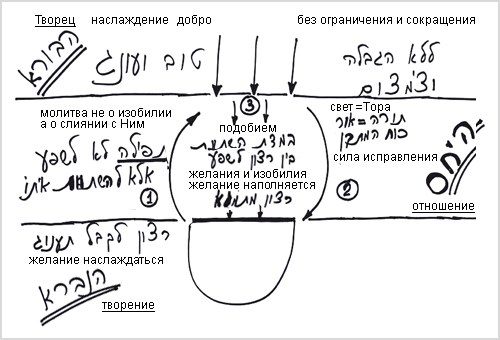 Творец наслаждение добро без ограничения и сокращения
הבורא
טוב ועונג
ללא הגבלה
וצמצום
молитва не о изобилии
а о слиянии с Ним
תפילה לא לשפע
אלא להשתוות איתו
①
③
подобием
במדת השתוות
בין רצון לשפע
желания и изобилия
желание наполняется
רצון מתמלא
свет=Тора
תורה=אור
כוח המתקן
сила исправления
②
היחס
отношение
רצון לקבל תענוג
желание наслаждаться
הנברא
творение